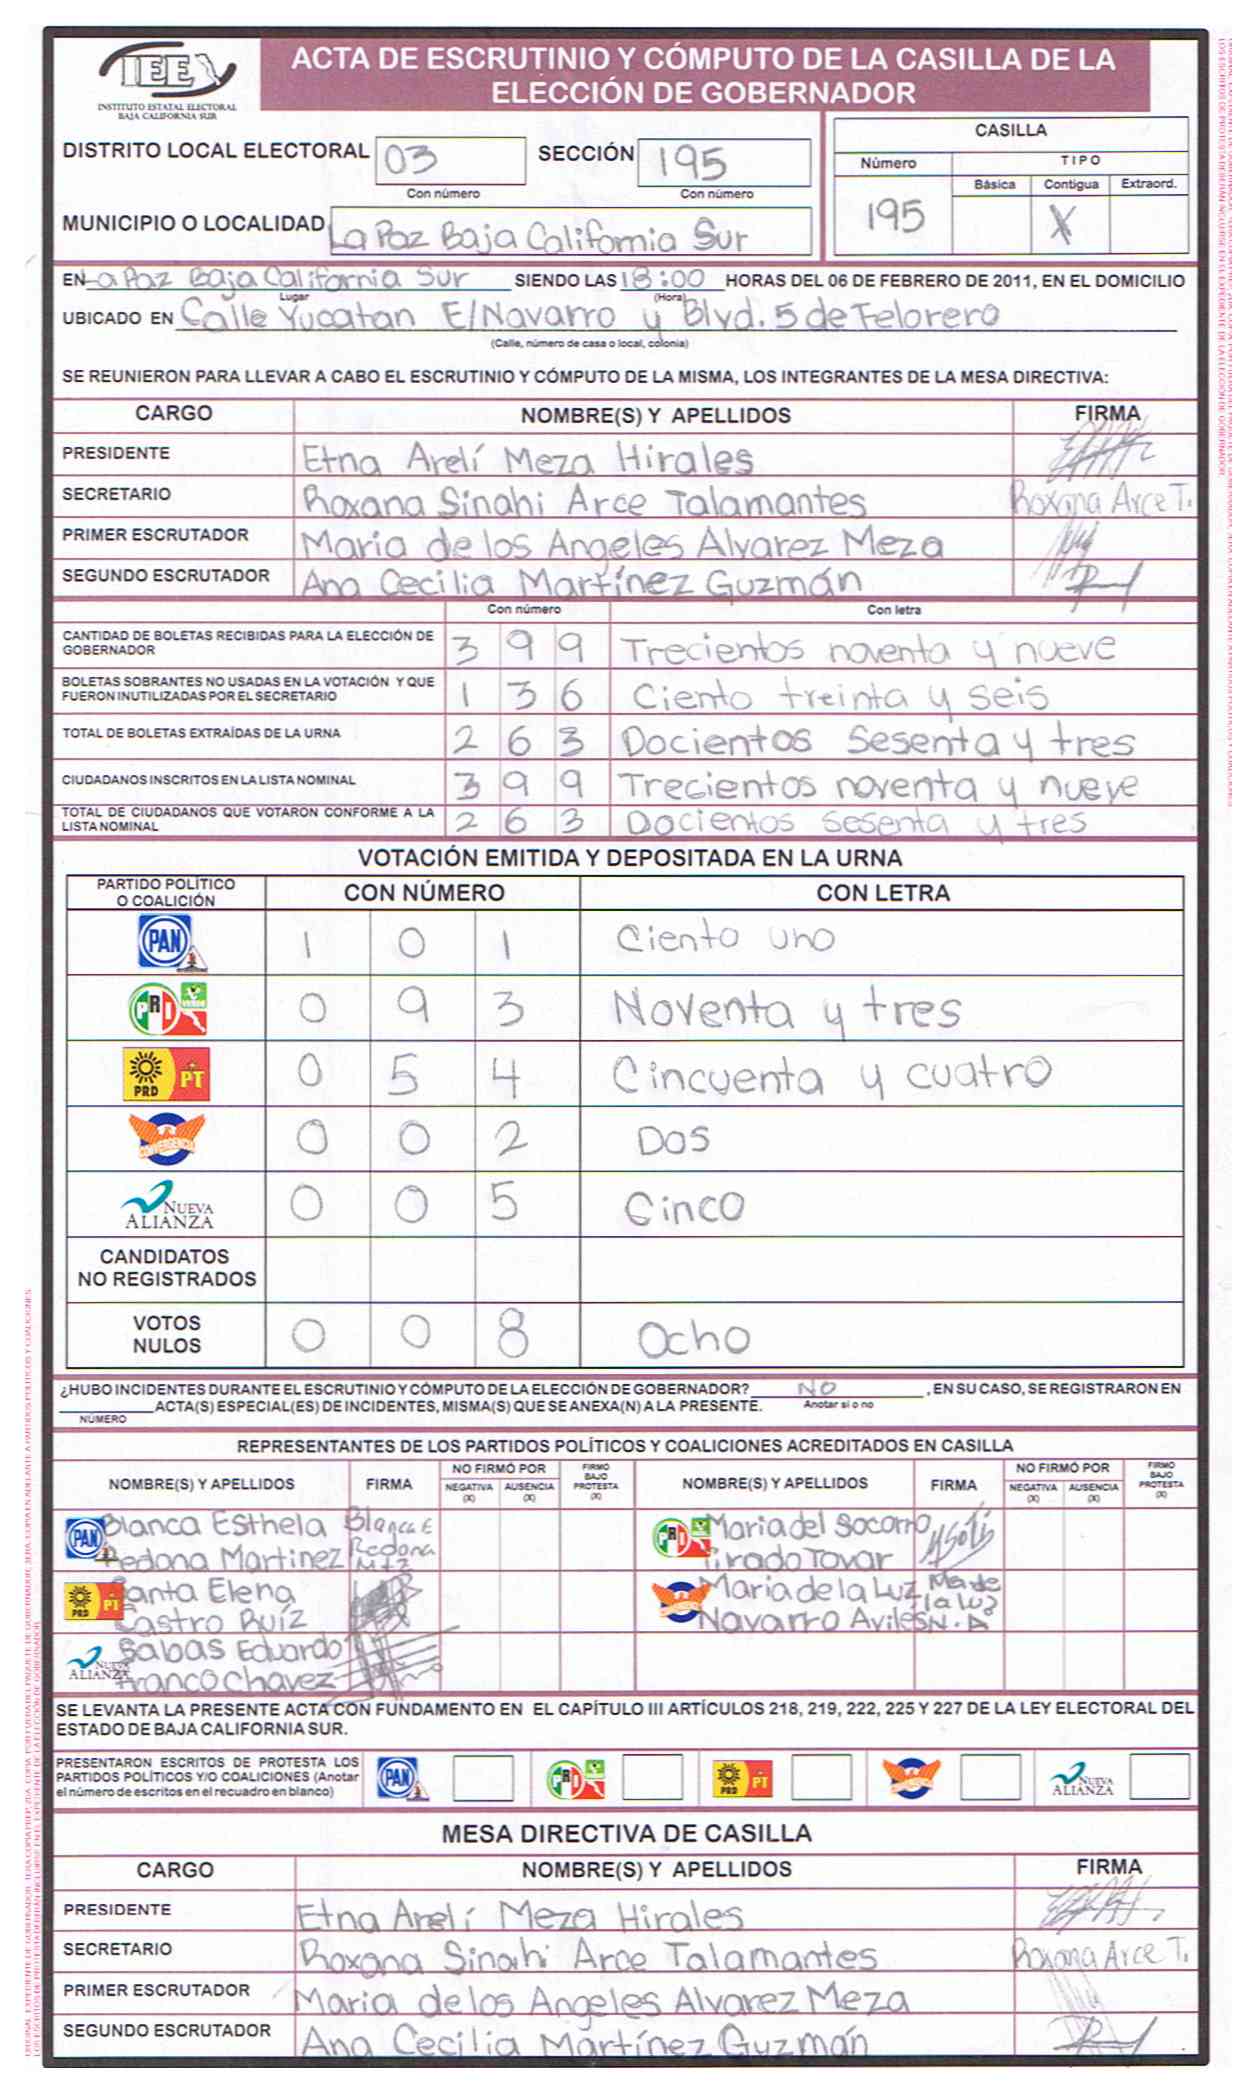 IEE
INSTITUTO ESTATAL ELECTORAL
BAJA CALIFORNIA SUR
ACTA DE ESCRUTINIO Y CÓMPUTO DE LA CASILLA DE LA
ELECCIÓN DE GOBERNADOR
DISTRITO LOCAL ELECTORAL 03 SECCIÓN 195
Con número Con número
MUNICIPIO O LOCALIDAD La Paz Baja California Sur
CASILLA
Número TIPO
Básica Contigua Extraord.
195 X
EN La Paz Baja California Sur SIENDO LAS 18:00 HORAS DEL 06 DE FEBRERO DE 2011, EN EL DOMICILIO
Lugar (Hora)
UBICADO EN Calle Yucatan E/Navarro y Blvd. 5 de Febrero
(Calle, número de casa o local, colonia)
SE REUNIERON PARA LLEVAR A CABO EL ESCRUTINIO Y CÓMPUTO DE LA MISMA, LOS INTEGRANTES DE LA MESA DIRECTIVA:
CARGO NOMBRE(S) Y APELLIDOS FIRMA
PRESIDENTE Etna Arelí Meza Hirales
SECRETARIO Roxana Sinahi Arce Talamantes Roxana Arce T.
PRIMER ESCRUTADOR Maria de los Angeles Alvarez Meza
SEGUNDO ESCRUTADOR Ana Cecilia Martínez Guzmán
Con número Con letra
CANTIDAD DE BOLETAS RECIBIDAS PARA LA ELECCIÓN DE
GOBERNADOR 3 9 9 Trecientos noventa y nueve
BOLETAS SOBRANTES NO USADAS EN LA VOTACIÓN Y QUE
FUERON INUTILIZADAS POR EL SECRETARIO 1 3 6 Ciento treinta y seis
TOTAL DE BOLETAS EXTRAÍDAS DE LA URNA 2 6 3 Docientos sesenta y tres
CIUDADANOS INSCRITOS EN LA LISTA NOMINAL 3 9 9 Trecientos noventa y nueve
TOTAL DE CIUDADANOS QUE VOTARON CONFORME A LA
LISTA NOMINAL 2 6 3 Docientos sesenta y tres
VOTACIÓN EMITIDA Y DEPOSITADA EN LA URNA
PARTIDO POLÍTICO
O COALICIÓN CON NÚMERO CON LETRA
PAN 1 0 1 Ciento uno
PRI VERDE 0 9 3 Noventa y tres
PRD PT 0 5 4 Cincuenta y cuatro
CONVERGENCIA 0 0 2 Dos
NUEVA ALIANZA 0 0 5 Cinco
CANDIDATOS
NO REGISTRADOS
VOTOS
NULOS 0 0 8 Ocho
¿HUBO INCIDENTES DURANTE EL ESCRUTINIO Y CÓMPUTO DE LA ELECCIÓN DE GOBERNADOR? NO , EN SU CASO, SE REGISTRARON EN
ACTA(S) ESPECIAL(ES) DE INCIDENTES, MISMA(S) QUE SE ANEXA(N) A LA PRESENTE. Anotar si o no
NÚMERO
REPRESENTANTES DE LOS PARTIDOS POLÍTICOS Y COALICIONES ACREDITADOS EN CASILLA
NOMBRE(S) Y APELLIDOS FIRMA NO FIRMÓ POR NEGATIVA (X) AUSENCIA (X) FIRMÓ BAJO PROTESTA (X) NOMBRE(S) Y APELLIDOS FIRMA NO FIRMÓ POR NEGATIVA (X) AUSENCIA (X) FIRMÓ BAJO PROTESTA (X)
PAN Blanca Esthela Blanca E PRI VERDE Maria del Socorro
Redona Martinez Redona Mtz Tirado Tovar
PRD PT Santa Elena Maria de la Luz Ma de
Castro Ruíz Navarro Aviles la Luz N. A
NUEVA ALIANZA Sabas Eduardo
Franco Chavez
SE LEVANTA LA PRESENTE ACTA CON FUNDAMENTO EN EL CAPÍTULO III ARTÍCULOS 218, 219, 222, 225 Y 227 DE LA LEY ELECTORAL DEL
ESTADO DE BAJA CALIFORNIA SUR.
PRESENTARON ESCRITOS DE PROTESTA LOS
PARTIDOS POLÍTICOS Y/O COALICIONES (Anotar
el número de escritos en el recuadro en blanco)
PAN PRI PRD PT NUEVA ALIANZA
MESA DIRECTIVA DE CASILLA
CARGO NOMBRE(S) Y APELLIDOS FIRMA
PRESIDENTE Etna Arelí Meza Hirales
SECRETARIO Roxana Sinahi Arce Talamantes Roxana Arce T.
PRIMER ESCRUTADOR Maria de los Angeles Alvarez Meza
SEGUNDO ESCRUTADOR Ana Cecilia Martínez Guzmán